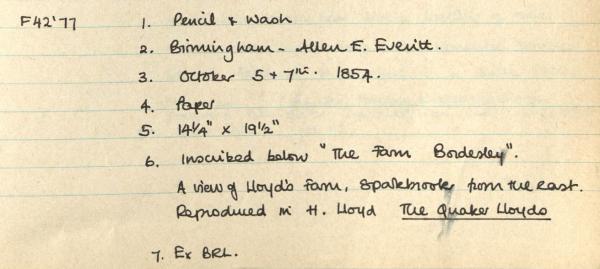 F42'77 1. Pencil & Wash
2. Birmingham - Allen E. Everitt.
3. October 5 & 7th. 1854.
4. Paper
5. 14¼" x 19½"
6. Inscribed below "The Farm Bordesley".
A view of Lloyd's Farm, Sparkbrook from the east.
Reproduced in H. Lloyd The Quaker Lloyds
7. Ex BRL.